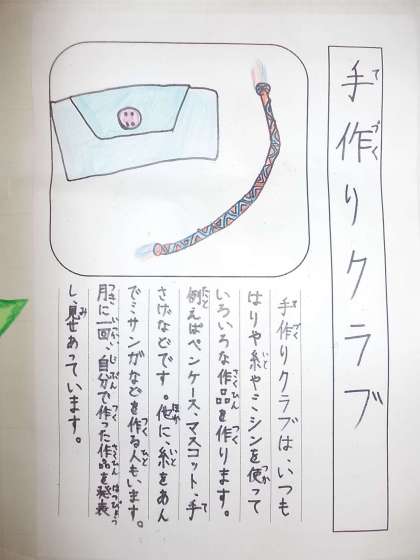 手作りクラブ
手作りクラブは、いつも
はりや糸やミシンを使って
いろいろな作品を作ります。
例えばペンケース、マスコット、手
さげなどです。他に、糸をあん
でミサンガなどを作る人もいます。
月に一回、自分で作った作品を発表
し、見せあっています。